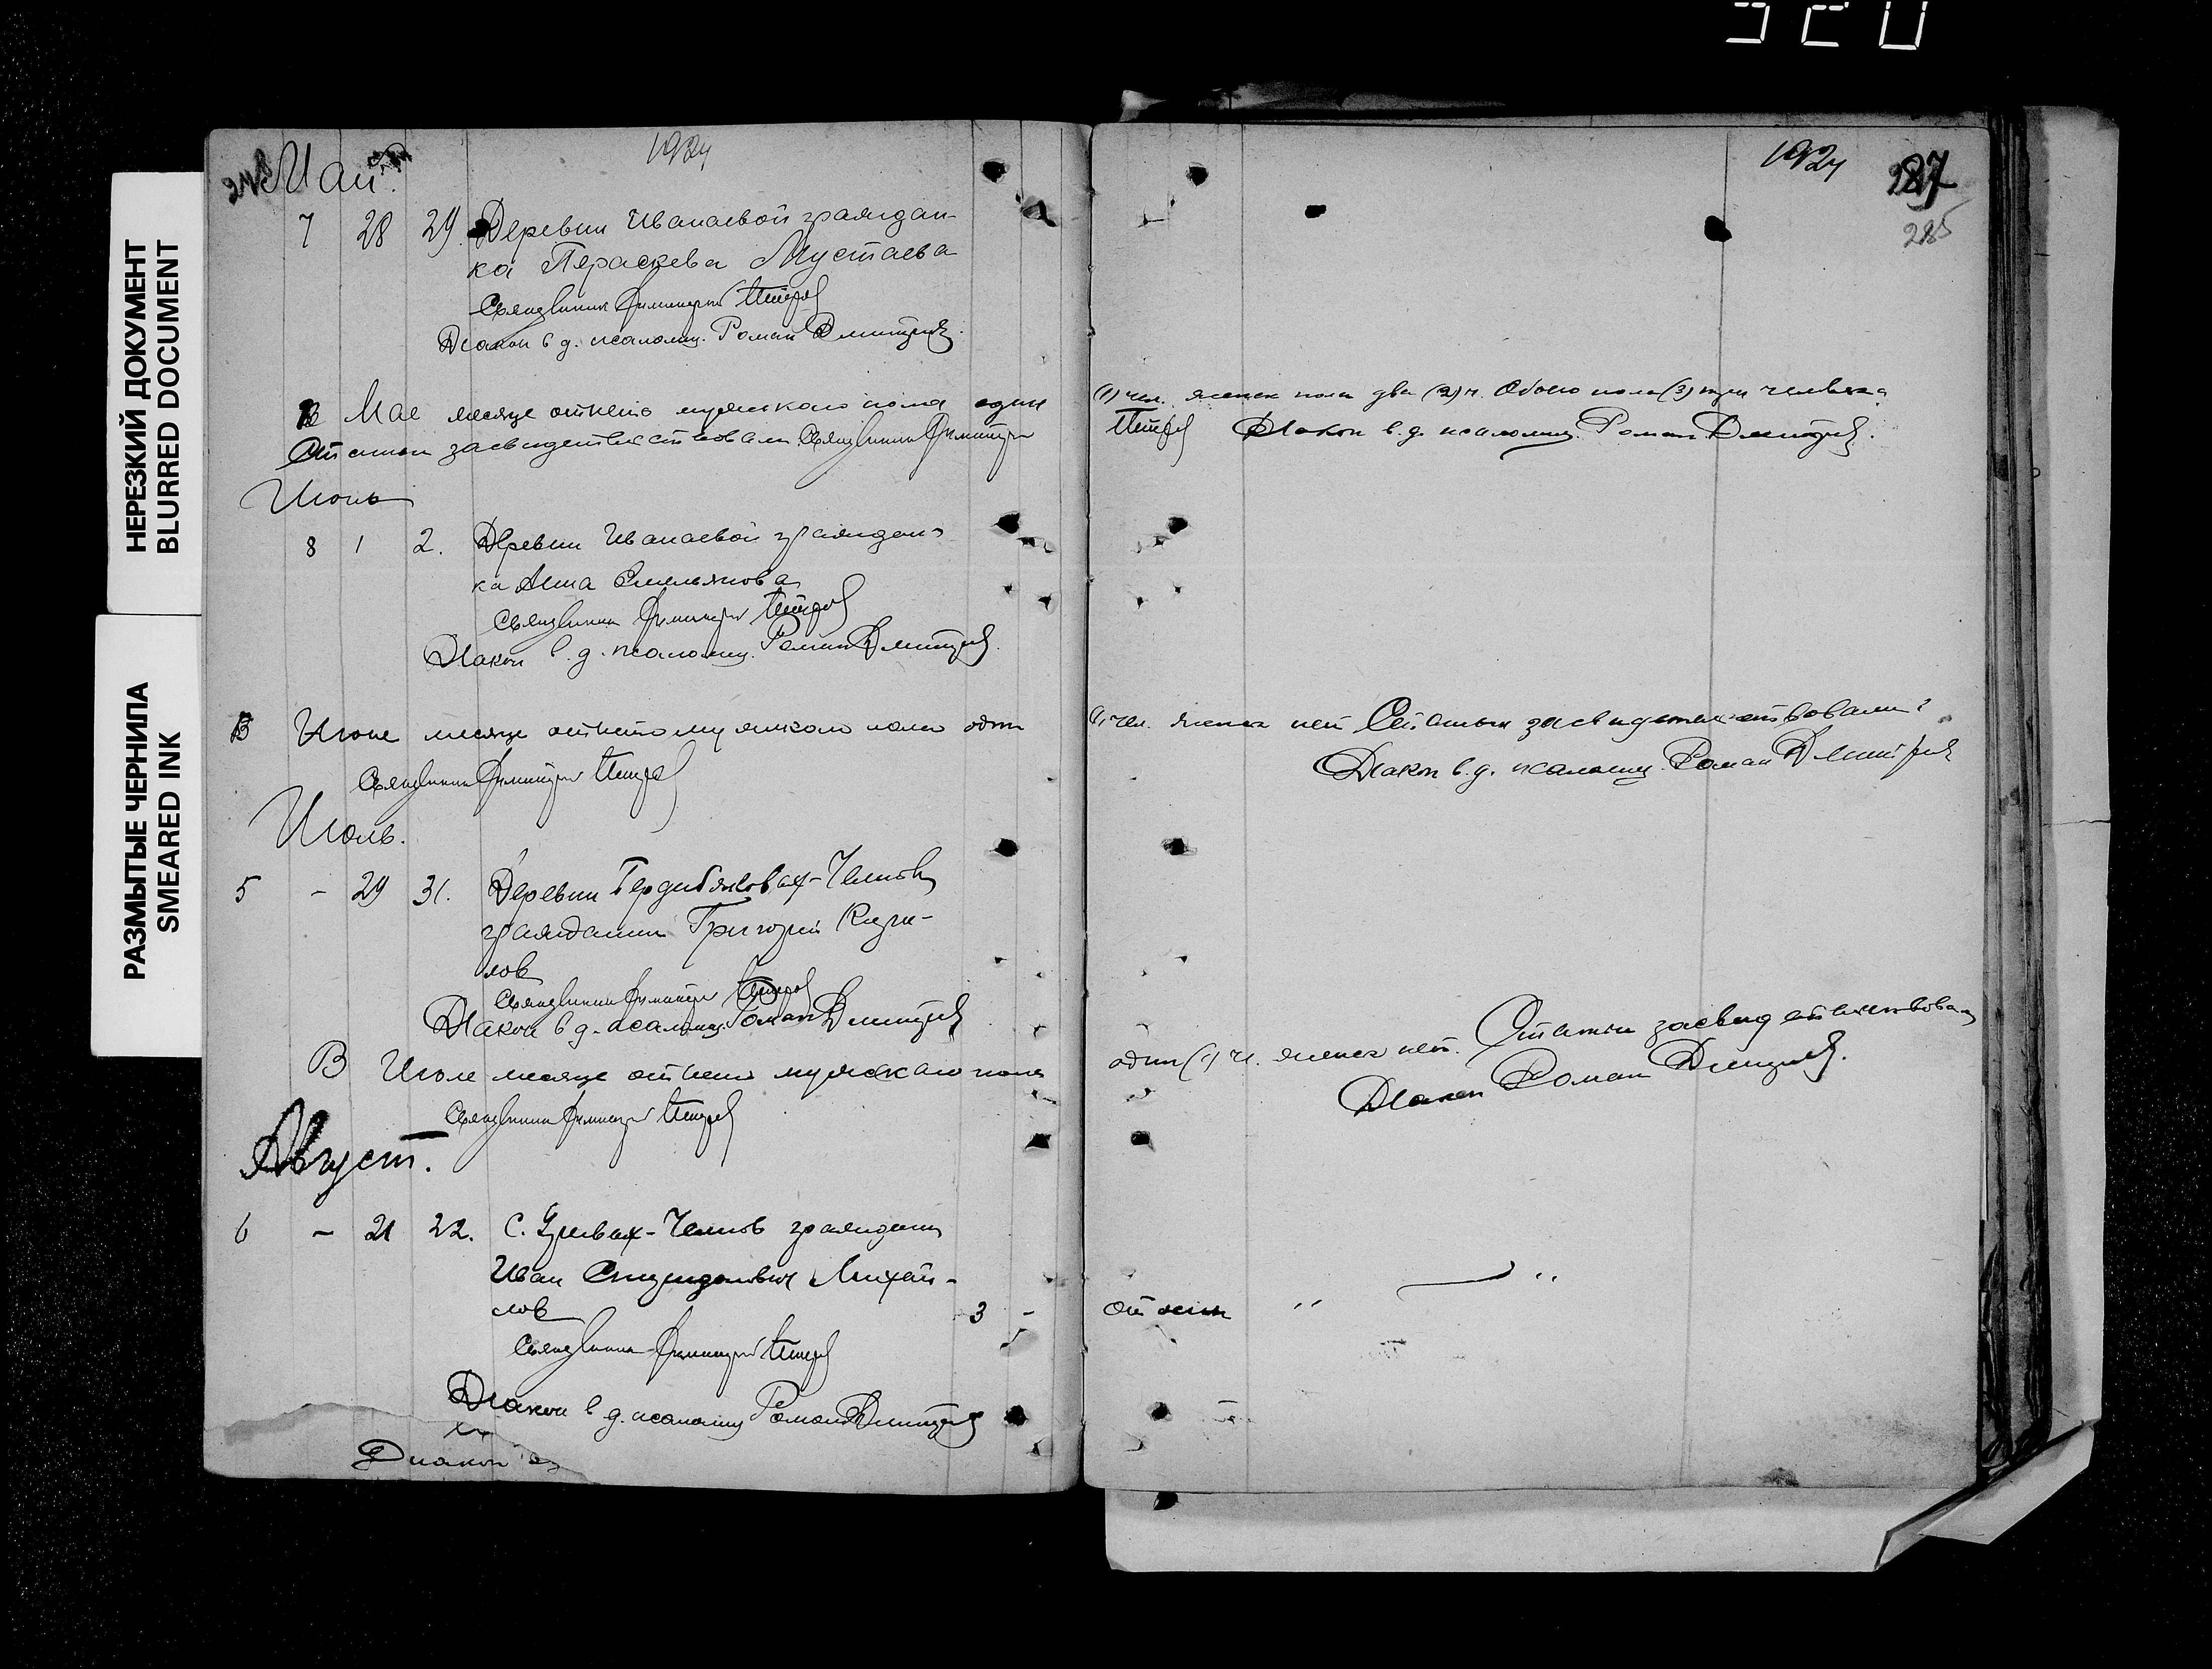 520
НЕРЕЗКИЙ ДОКУМЕНТ
BLURRED DOCUMENT
РАЗМЫТЫЕ ЧЕРНИЛА
SMEARED INK
1924
Май.
7 28 29. Деревни Иванаевой граждан-
ка Параскева Мустаева
Священник Димитрий Петров
Диакон в д. псаломщ. Роман Дмитриев.
В Мае месяце отпето мужского пола один
Статьи засвидетельствовали Священник Димитрий
Июнь
8 1 2. Деревни Иванаевой граждан-
ка Анна Емельянова
Священник Димитрий Петров
Диакон в. д. псаломщ. Роман Дмитриев.
В Июне месяце отпето мужского пола один
Священник Димитрий Петров
Июль.
5 - 29 31. Деревни
гражданин Григорий Кири-
лов
Священник Димитрий Петров
Диакон в д. псаломщ. Роман Дмитриев
В Июле месяце отпето мужского пола
Священник Димитрий Петров
Август.
6 - 21 22. С. гражданин
Иван Михай-
лов 3 -
Священник Димитрий Петров
Диакон в д. псаломщ Роман Дмитриев
Диакон
1924 287
285
(1) чел. женск пола два (2) ч. Обоего пола (3) три человека
Петров Диакон в. д. псаломщ. Роман Дмитриев.
(1) чел. женск нет Статьи засвидетельствовали:
Диакон в. д. псаломщ. Роман Дмитриев
один (1) ч. женск нет. Статьи засвидетельствовали
Диакон Роман Дмитриев.